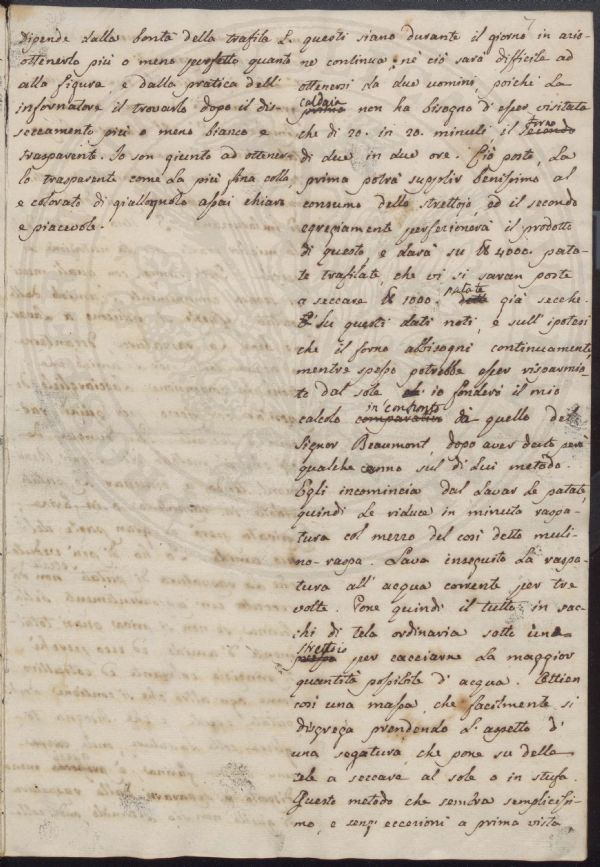 7
dipende dalla bontà della trafila l'
ottenerlo più o meno perfetto quanto
alla figura, e dalla pratica dell'
infornatore il trovarlo dopo il dis=
seccamento più o meno bianco e
trasparente. Io son giunto ad ottener=
lo trasparente come la più fina colla,
e colorato di giallognolo assai chiaro
e piacevole.
questi siano durante il giorno in azio=
ne continua, nè ciò sarà difficile ad
ottenersi da due uomini, poichè la
caldaia
prima non ha bisogno d'esser visitata
forno
che di 20. in 20. minuti il secondo
di due in due ore. Ciò posto, la
prima potrà supplir benissimo al
consumo dello strettojo, ed il secondo
egregiamente perfezionerà il prodotto
di questo, e darà su lb 4000. pata=
te trafilate, che vi si saran poste
patate
a seccare lb 1000. dette già secche.
Su questi dati noti, e sull'ipotesi
che il forno abbisogni continuamente,
mentre spesso potrebbe esser risparmia=
to dal sole io fonderò il mio
in confronto
calcolo comparativo di quello del
Signor Beaumont, dopo aver dato però
qualche cenno sul di Lui metodo.
Egli incomincia dal lavar le patate,
quindi le riduce in minuta raspa=
tura col mezzo del così detto muli=
no=raspa. Lava inseguito la raspa=
tura all'acqua corrente per tre
volte. Pone quindi il tutto in sac=
chi di tela ordinaria sotto uno
strettojo
pressa per cacciarne la maggior
quantità possibile d'acqua. Ottien
così una massa, che facilmente si
disgrega prendendo l'aspetto d'
una segatura, che pone su delle
tele a seccare al sole o in stufa.
Questo metodo che sembra semplicissi=
mo, e senz'eccezioni a prima vista